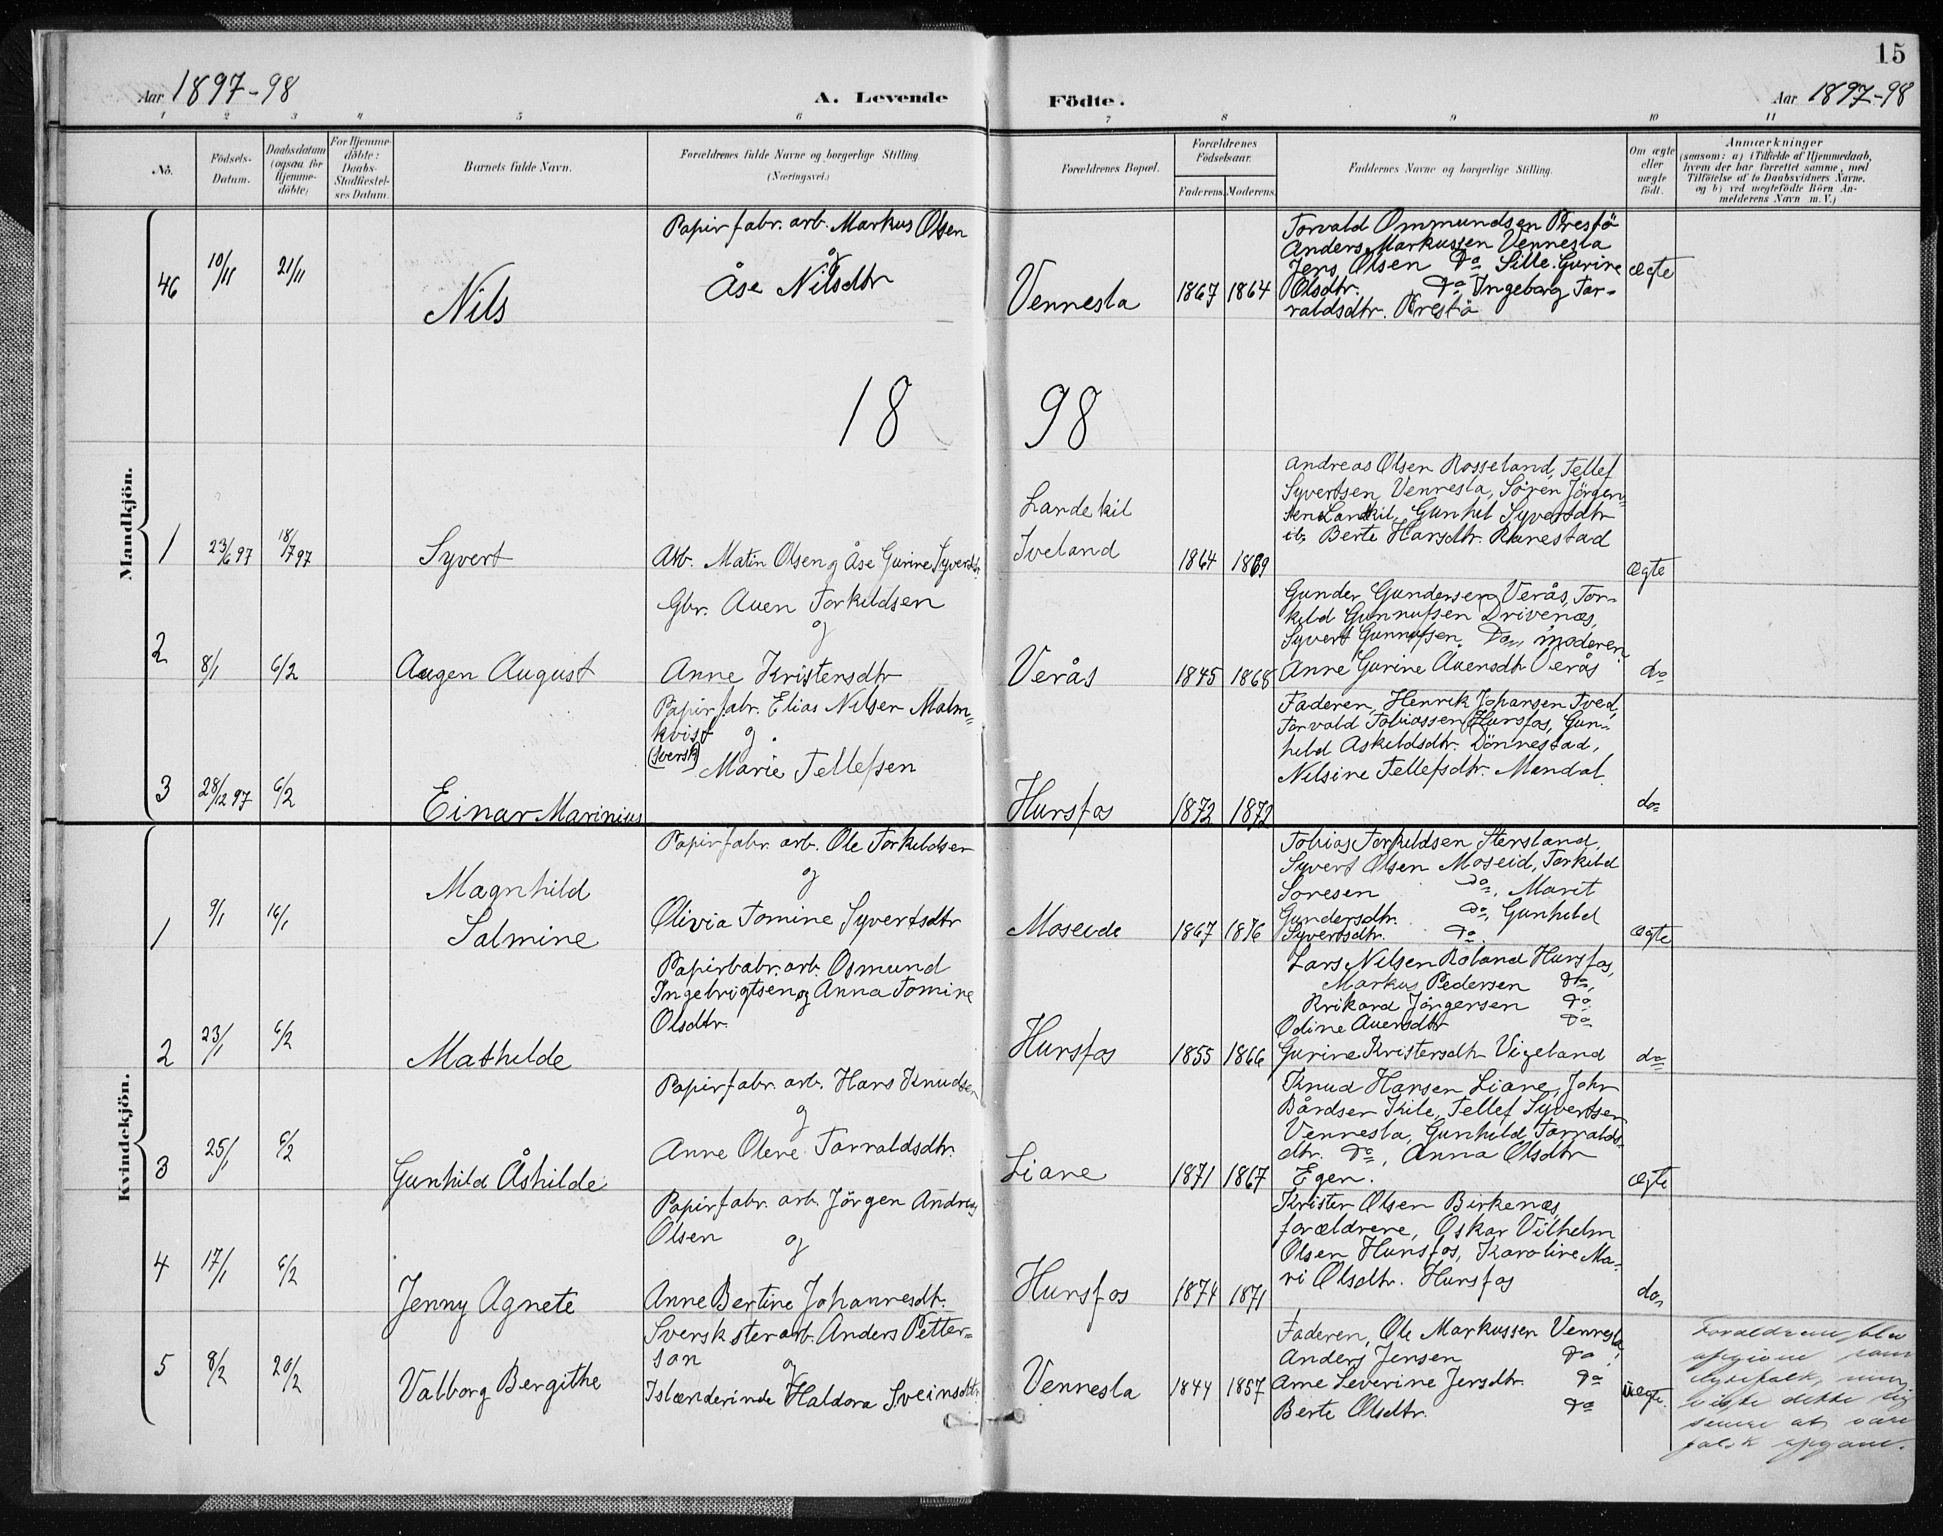 15
Aar 1897-98
A. Levende Födte.
Aar 1897-98
1 2 3 4 5 6 7 8 9 10 11
No.
Födsels-
Datum.
Daabsdatum
(ogsaa för
Hjemme-
döbte)
For Hjemme-
döbte:
Daabs-
Stadfæstel-
ses Datum.
Barnets fulde Navn.
Forældrenes fulde Navne og borgerlige Stilling
(Næringsvei.)
Forældrenes Bopæl.
Forældrenes
Födselsaar.
Faderens. Moderens.
Faddernes Navne og borgerlige Stilling.
Om ægte
eller
uægte
født.
Anmærkninger
(saasom: a) i Tilfælde af Hjemmedaab,
hvem der har forrettet samme, med
Tilføielse af to Daabsvidners Navne.
og b) ved uægtefödte Börn An-
melderens Navn m. V.)
Mandkjön.
46
10/11
21/11
Nils
Papirfabr. arb. Markus Olsen
og
Åse Nilsdtr
Vennesla
1867 1864
Torvald Ommundsen Prestö
Anders Markussen Vennesla
Jens Olsen Do Sille Gurine
Olsdtr. Do Ingeborg Tar-
raldsdtr. Prestö
Ægte
18 98
1
23/6 97
18/7 97
Syvert
Arb. Matin Olsen og Åse Gurine Syvertsdtr.
Landekil
Iveland
1864 1869
Andreas Olsen Rosseland, Tellef
Syvertsen Vennesla, Sören Jörgen-
sen Landkil, Gunhil Syversdtr
ib, Berte Hansdtr. Ranestad
Ægte
2
8/1
6/2
Augen August
Gbr. Auen Torkildsen
og
Anne Kristensdtr
Verås
1845 1868
Gunder Gundersen Verås, Tor-
kild Gunnufsen Drivenæs,
Syvert Gunnufsen Do, moderen
Anne Gurine Auensdtr Verås
do
3
28/12 97
6/2
Einar Marinius
Papirfabr. Elias Nilsen Malm-
kvist og
(svensk)
Marie Tellefsen
Hunsfos
1872 1872
Faderen, Henrik Johansen Tved,
Torvald Tobiassen Hunsfos, Gun-
hild Askildsdtr. Dönnestad,
Nilsine Tellefsdtr. Mandal.
do
Kvindekjön.
1
9/1
16/1
Magnhild
Salmine
Papirfabr. arb. Ole Torkildsen
og
Olivia Tomine Syvertsdtr
Moseide
1867 1876
Tobias Torkildsen Stersland,
Syvert Olsen Moseid, Torkild
Soresen Do, Marit
Gundersdtr. Do, Gunhild
Syvertsdtr. Do.
Ægte
2
23/1
6/2
Mathilde
Papirfabr. arb. Osmund
Ingebrigtsen og Anna Tomine
Olsdtr.
Hunsfos
1855 1866
Lars Nilsen Roland Hunsfos,
Markus Pedersen Do,
Rikard Jörgensen Do
Odine Auensdtr Do
Gurine Kristensdtr Vigeland
do
3
25/1
6/2
Gunhild Åshilde
Papirfabr. arb. Hans Knudsen
og
Anne Olene Tarraldsdtr.
Liane
1871 1867
Knud Hansen Liane, John
Bårdsen Kile, Tellef Syvertsen
Vennesla, Gunhild Tarralds-
dtr. Do, Anna Olsdtr
Egen.
Ægte
4
17/1
6/2
Jenny Agnete
Papirfabr. arb. Jörgen Andreas
Olsen og
Anne Bertine Johannesdtr.
Hunsfos
1874 1871
Krister Olsen Birkenæs,
forældrene, Oskar Vilhelm
Olsen Hunsfos, Karoline Ma-
ri Olsdtr. Hunsfos
do
5
8/2
20/2
Valborg Bergithe
Svensk stenarb. Anders Petter-
son og
Islænderinde Haldora Sveinsdtr
Vennesla
1844 1857
Faderen, Ole Markussen Vennesla,
Anders Jensen Do
Ane Severine Jensdtr. Do
Berte Olsdtr. Do
Uægte.
Forældrene blev
opgivne som
ægtefolk, men
viste dette sig
senere at være
falsk opgave.